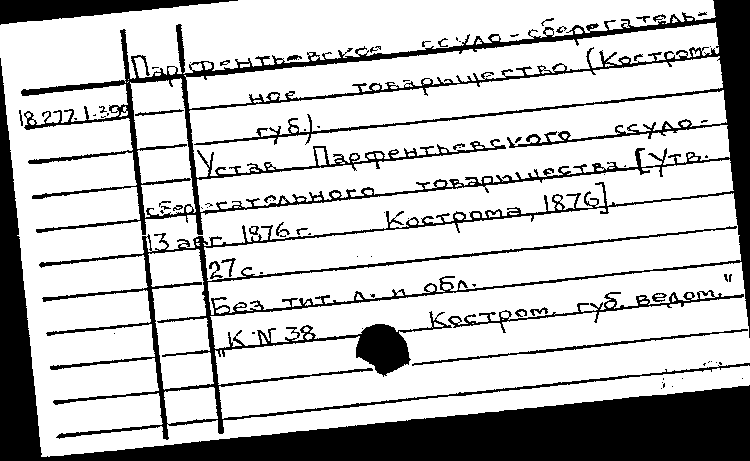 Парфентьевское ссудо-сберегатель-
18.277.1.390
ное товарищество. (Костромс.
губ.).
Устав Парфентьевского ссудо-
сберегательного товарищества. [Утв.
13 авг. 1876 г. Кострома, 1876].
27 с.
Без тит. л. и обл.
"К N 38 Костром. губ. ведом."